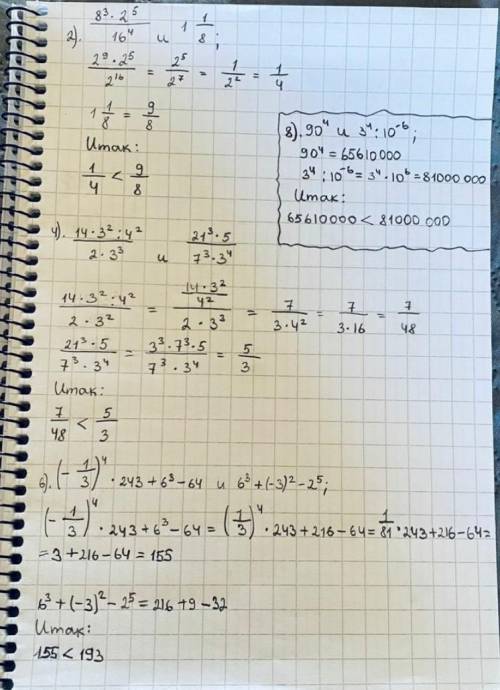 2). (8³ · 2⁵)/16⁴ и 1 1/8;
(2⁹ · 2⁵)/2¹⁶ = 2⁵/2⁷ = 1/2² = 1/4
1 1/8 = 9/8
Итак:
1/4 < 9/8
8). 90⁴ и 3⁴ : 10⁻⁶;
90⁴ = 65610000
3⁴ : 10⁻⁶ = 3⁴ · 10⁶ = 81000 000
Итак:
65610000 < 81000 000
4). (14 · 3² : 4²)/(2 · 3³) и (21³ · 5)/(7³ · 3⁴)
(14 · 3² : 4²)/(2 · 3²) = ((14 · 3²)/4²)/(2 · 3³) = 7/(3 · 4²) = 7/(3 · 16) = 7/48
(21³ · 5)/(7³ · 3⁴) = (3³ · 7³ · 5)/(7³ · 3⁴) = 5/3
Итак:
7/48 < 5/3
6). (- 1/3)⁴ · 243 + 6³ - 64 и 6³ + (-3)² - 2⁵;
(- 1/3)⁴ · 243 + 6³ - 64 = (1/3)⁴ · 243 + 216 - 64 = 1/81 · 243 + 216 - 64 =
= 3 + 216 - 64 = 155
6³ + (-3)² - 2⁵ = 216 + 9 - 32
Итак:
155 < 193